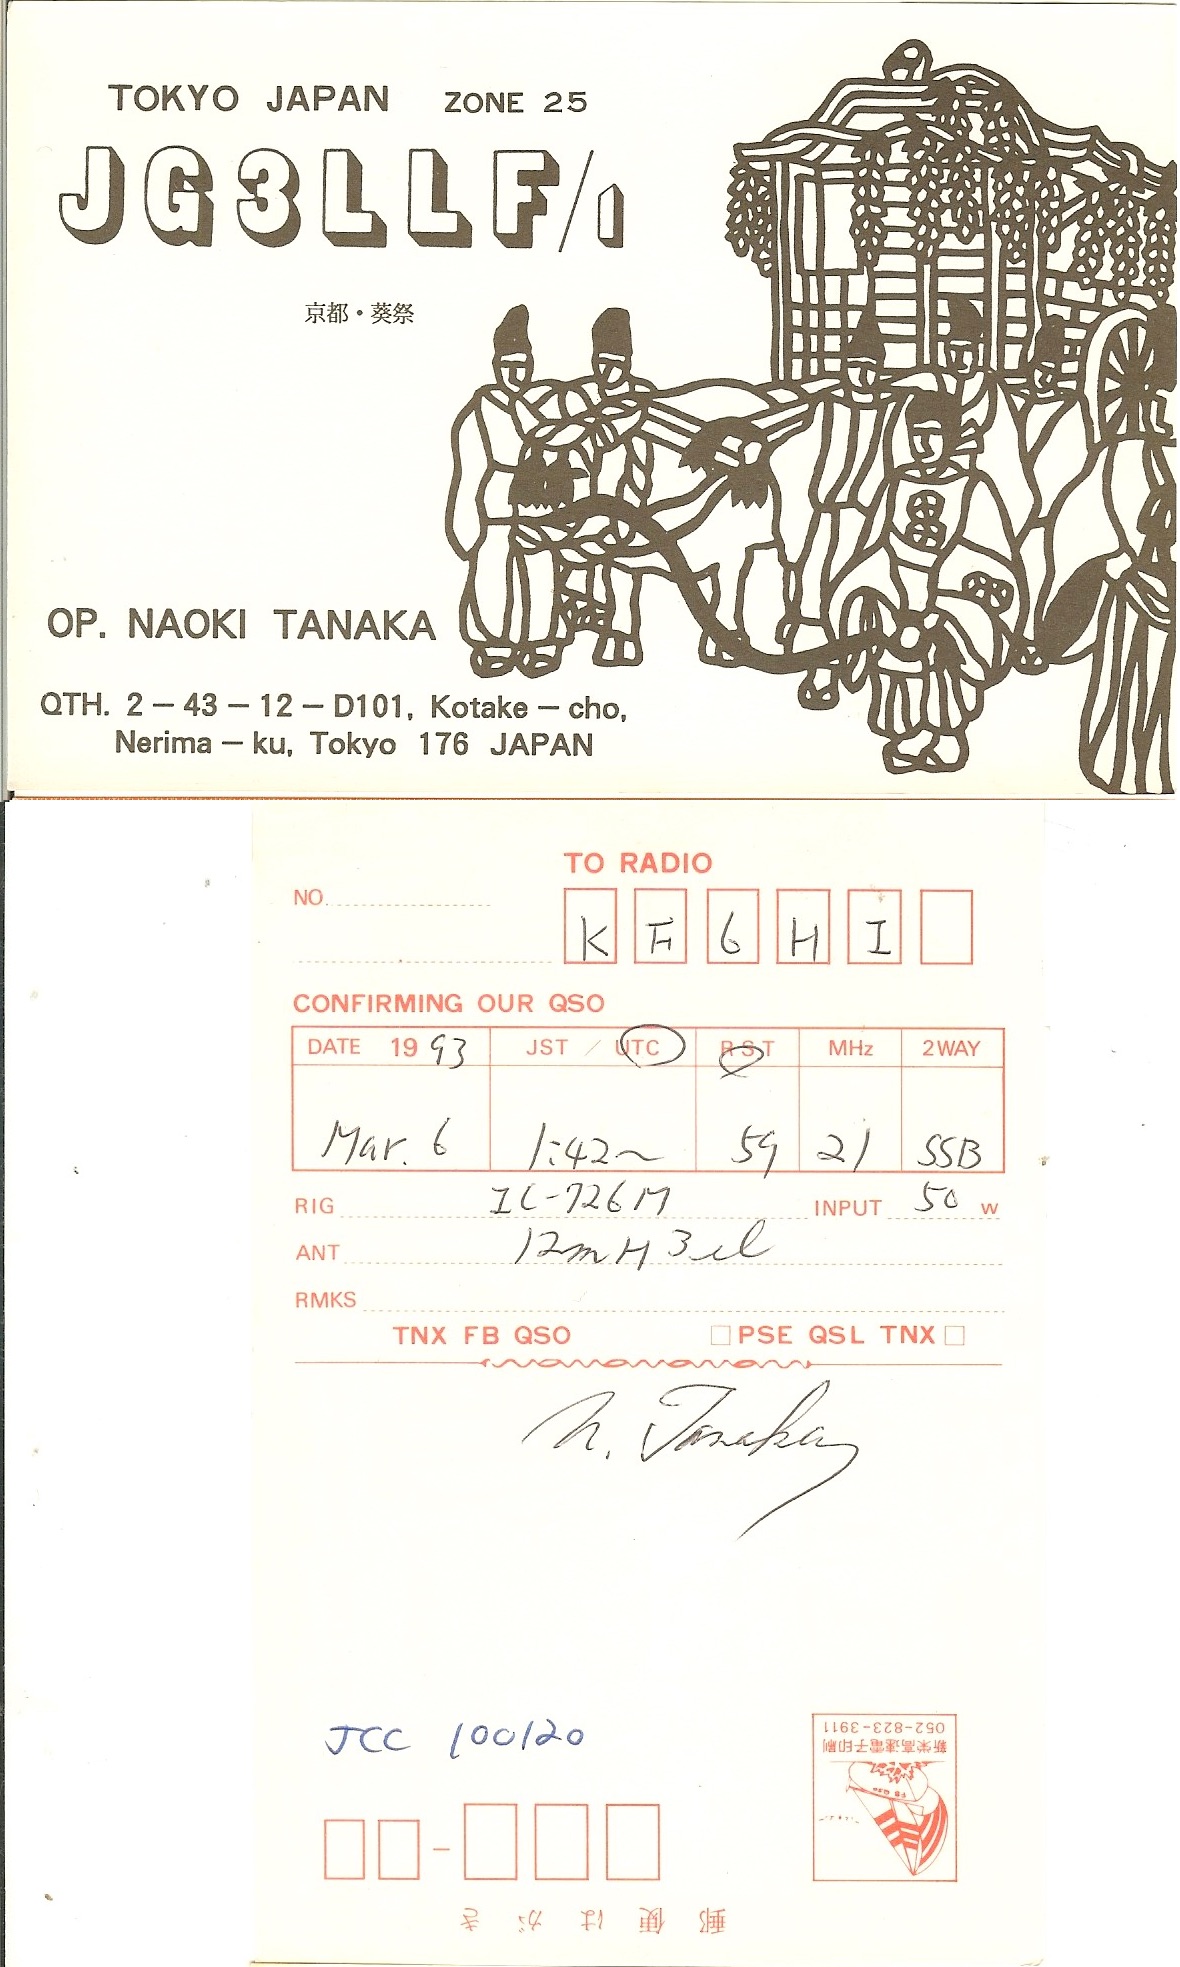 TOKYO JAPAN ZONE 25
JG3LLF/1
京都・葵祭
OP. NAOKI TANAKA
QTH. 2－43－12－D101, Kotake－cho,
Nerima－ku, Tokyo 176 JAPAN
TO RADIO
NO.
K F 6 H I
CONFIRMING OUR QSO
DATE 1993 JST / UTC RST MHz 2WAY
Mar. 6 1:42~ 59 21 SSB
RIG IC-726M INPUT 50 W
ANT 12mH 3el
RMKS
TNX FB QSO □PSE QSL TNX□
N. Tanaka
JCC 100120
052-823-3911
新栄高速電子印刷
FB QSO
郵便はがき